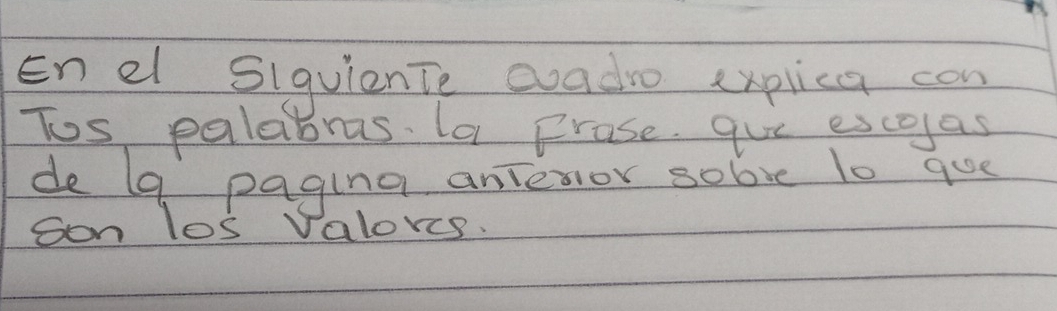 En el siguiente cuadro explica con
Tus palabras. la frase. que escojas
de la pagina anterior sobre lo que
son los valores.